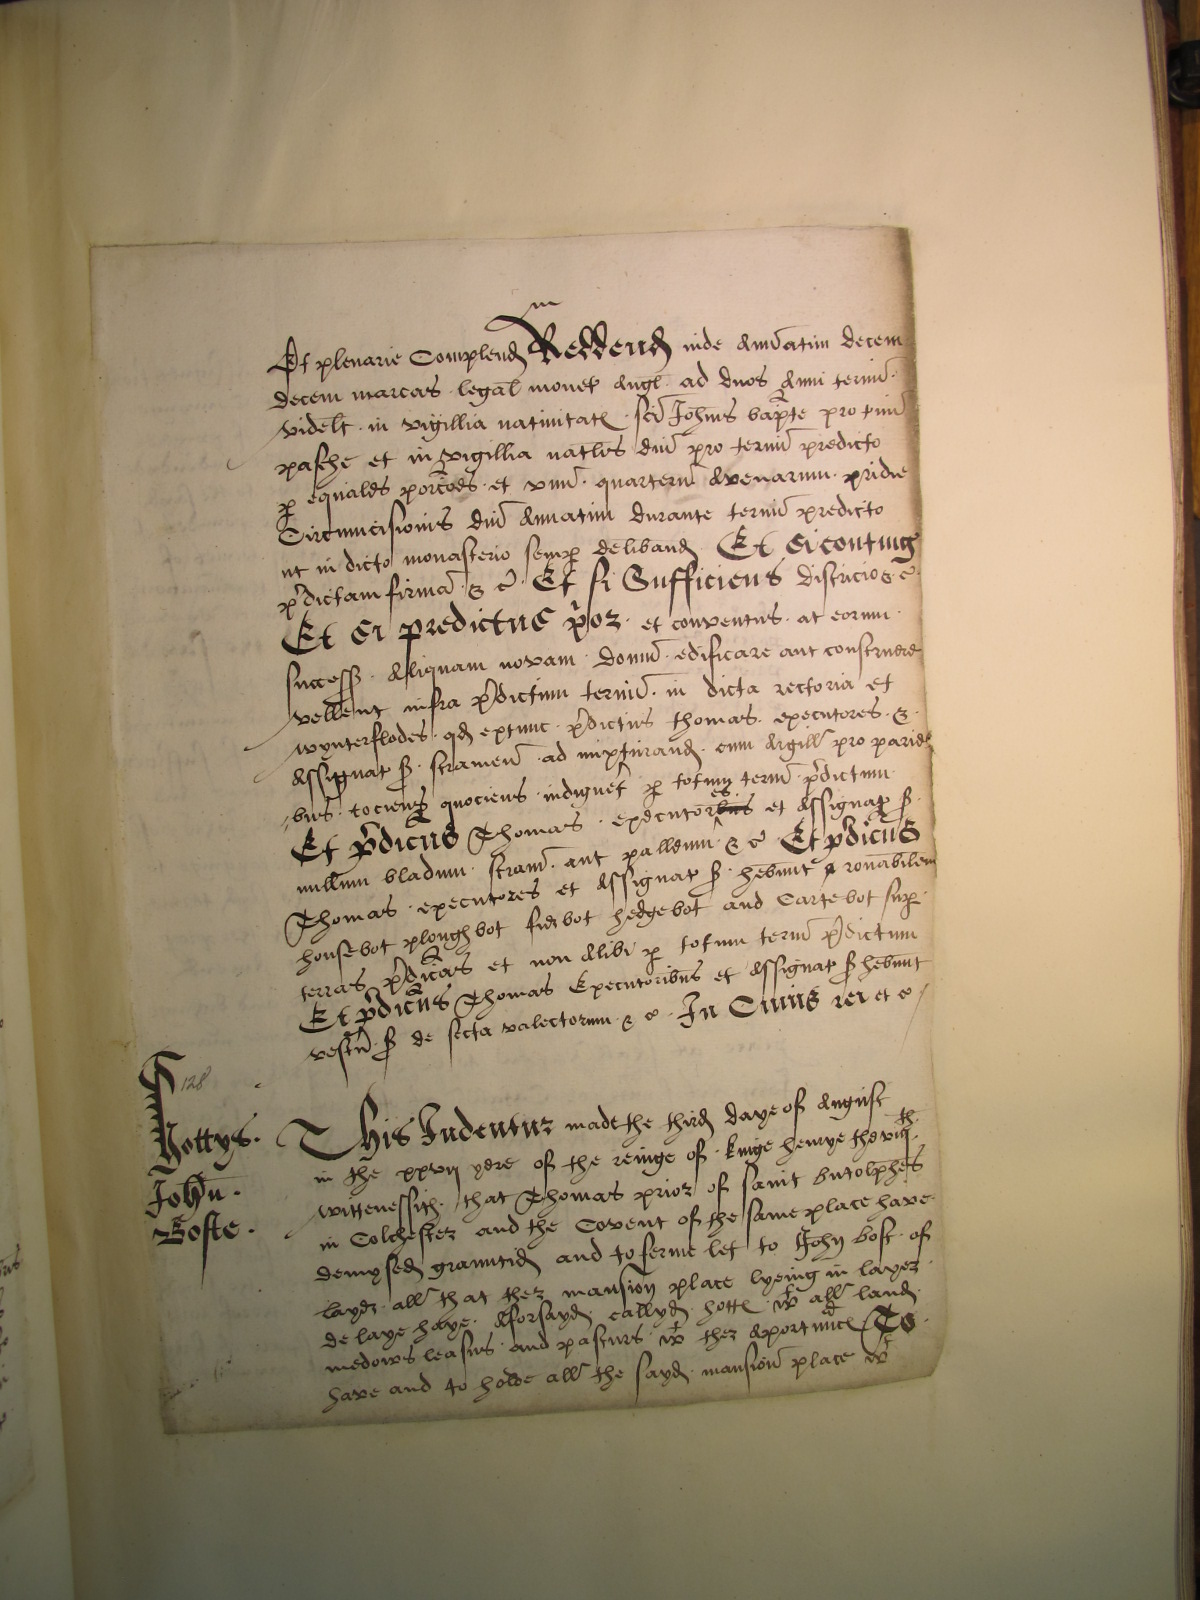 Et plenarie Complend Reddend inde Annuatim decem
decem marcas legal monet Angl ad duos Anni termi
videlt in vigillia nativitat sci Johnis bapte pro timi
pasche et in vigillia natlis dni pro termi predicto
p equales porcoes et viii quarteri Avenarum pridie
Circumcisionis dni Annatim durante termi predicto
ut in dicto monasterio semp deliband Et si conting
pdictam firma & c Et si Sufficiens districio & c
Et si predictus por et conventus at eorum
success Aliquam novam domu edificare aut construere
vellent infra pdictum termi in dicta rectoria et
wynterflodes qd extunc pdictus thomas executores &
Assignat s stramen ad mixturand cum Argill pro parieti
bus tociens quociens indiguet p totum termi pdictum
Et pdicus Thomas executores et Assignat s
nullum bladum stram aut palleum & c Et pdicus
Thomas executores et Assignat s hebunt ronabilem
housebot ploughbot firbot hedgebot and Cartebot sup
terras pdicas et non Alibi p totum termi pdictum
Et pdicus Thomas Executoribus et Assignat s hebunt
vestur s de secta valectorum & c In Cuius rei et c
128
Hottys
John
Boste
This Indentur made the third daye of August
in the xxvij yere of the reinge of kinge henrye the viijth
wittenessith that Thomas prior of saint butolphes
in Colchester and the Covent of the same place have
demysed grauntid and to ferme let to John bost of
layer all that ther mansion place lyeing in layer
de laye haye Aforsayd callyd hott wt all land
medows leasurs and pasturs wt ther Aportinc To
have and to holde all the sayd mansion place wt